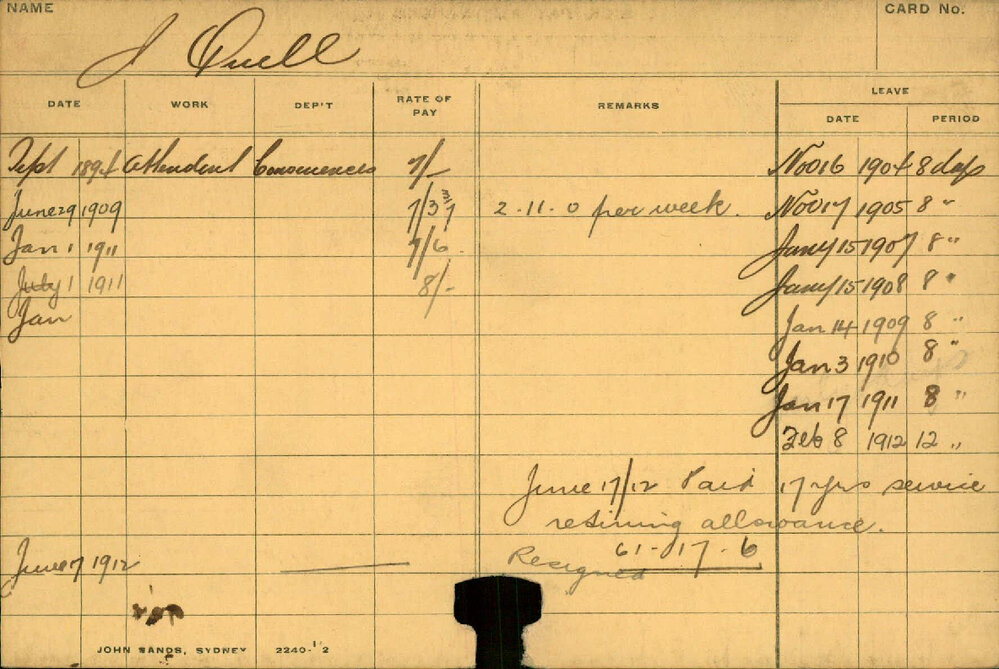 NAME
CARD No.
J Quell
DATE WORK DEP'T RATE OF PAY REMARKS LEAVE
DATE PERIOD
Sept 1894 Attendant Commenced 7/- Nov 16 1904 8 days
June 29 1909 7/3 2-11-0 per week. Nov 17 1905 8 "
Jan 1 1911 7/6 Jany 15 1907 8 "
July 1 1911 8/- Jany 15 1908 8 "
Jan Jan 14 1909 8 "
Jan 3 1910 8 "
Jan 17 1911 8 "
Feb 8 1912 12 "
June 17/12 Paid 17 yrs service
retiring allowance.
61-17-6
June 7 1912 Resigned
JOHN SANDS, SYDNEY 2240-12